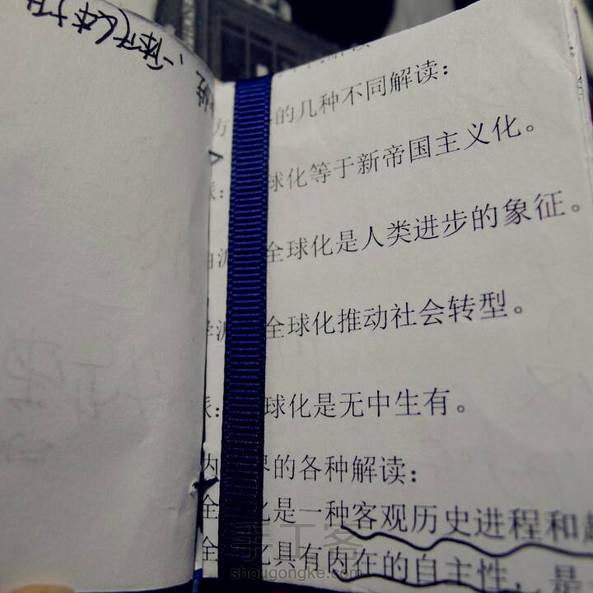 的几种不同解读：
球化等于新帝国主义化。
全球化是人类进步的象征。
全球化推动社会转型。
球化是无中生有。
界的各种解读：
全 化是一种客观历史进程和
全 化具有内在的自主性，是
手工客
shougongke.com